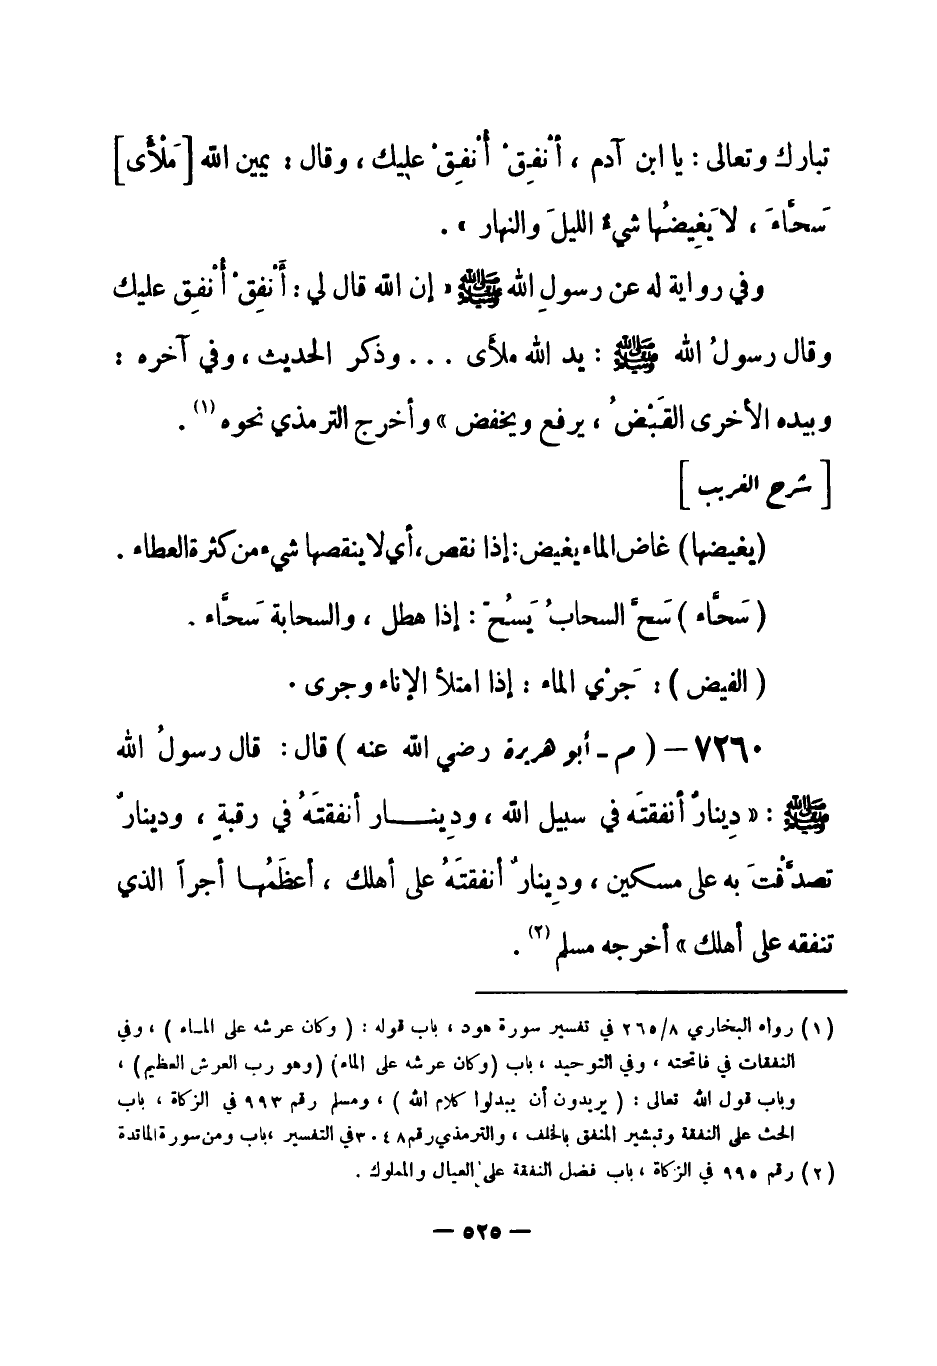 تبارك وتعالى : يا ابن آدم ، أَنْفِقْ أُنْفِقْ عليك ، وقال : يمين الله [ مَلْأَى ]
سَحَّاءَ ، لا يَغِيضُها شيءٌ الليلَ والنهار » .
وفي رواية له عن رسولِ الله ﷺ « إن الله قال لي : أَنْفِقْ أُنْفِق عليك
وقال رسولُ الله ﷺ : يد الله ملأى ... وذكر الحديث ، وفي آخره :
وبيده الأخرى القَبْضُ ، يرفع ويخفض » وأخرج الترمذي نحوه (١) .
[ شرح الغريب ]
( يغيضها ) غاض الماء يغيض : إذا نقص ، أي لا ينقصها شيء من كثرة العطاء .
( سَحَّاء ) سَحَّ السحابُ يَسُحّ : إذا هطل ، والسحابة سَحَّاء .
( الفيض ) : جَرْي الماء : إذا امتلأ الإناء وجرى .
٧٢٦٠ – ( م - أبو هريرة رضي الله عنه ) قال : قال رسولُ الله
ﷺ : « دِينارٌ أنفقتَه في سبيل الله ، ودِينــــار أنفقتَهُ في رقبةٍ ، ودينارٌ
تصدَّقْتَ به على مسكين ، ودِينارٌ أنفقتَهُ على أهلك ، أعظَمُها أجراً الذي
تنفقه على أهلك » أخرجه مسلم (٢) .
(١) رواه البخاري ٢٦٥/٨ في تفسير سورة هود ، باب قوله : ( وكان عرشه على المـاء ) ، وفي
النفقات في فاتحته ، وفي التوحيد ، باب (وكان عرشه على الماء) (وهو رب العرش العظيم) ،
وباب قول الله تعالى : ( يريدون أن يبدلوا كلام الله ) ، ومسلم رقم ٩٩٣ في الزكاة ، باب
الحث على النفقة وتبشير المنفق بالخلف ، والترمذي رقم ٣٠٤٨ في التفسير ، باب ومن سورة المائدة
(٢) رقم ٩٩٥ في الزكاة ، باب فضل النفقة على العيال والمملوك .
— ٥٢٥ —